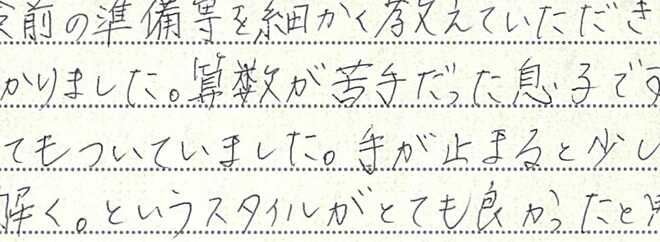 前の準備等を細かく教えていただき
かりました。算数が苦手だった息子です
てもついていました。手が止まると少し
解く。というスタイルがとても良かったと